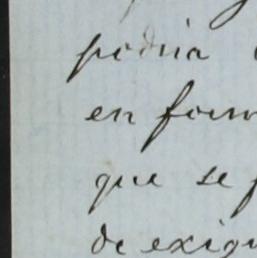 podria
en form
que se
de exig